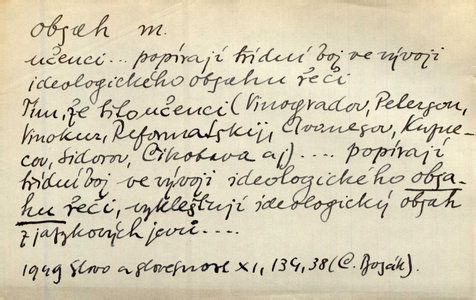 obsah m.
učenci... popírají třídní boj ve vývoji
ideologického obsahu řeči
Tím, že tito učenci (Vinogradov, Peterson,
Vinokur, Reformatskij, Avanesov, Kuzne-
cov, Sidorov, Čikobava aj) .... popírají
třídní boj ve vývoji ideologického obsa-
hu řeči, vykleštují ideologický obsah
z jazykových jevů....
1949 Slovo a slovesnost XI, 134, 38 (Č. Bosák).